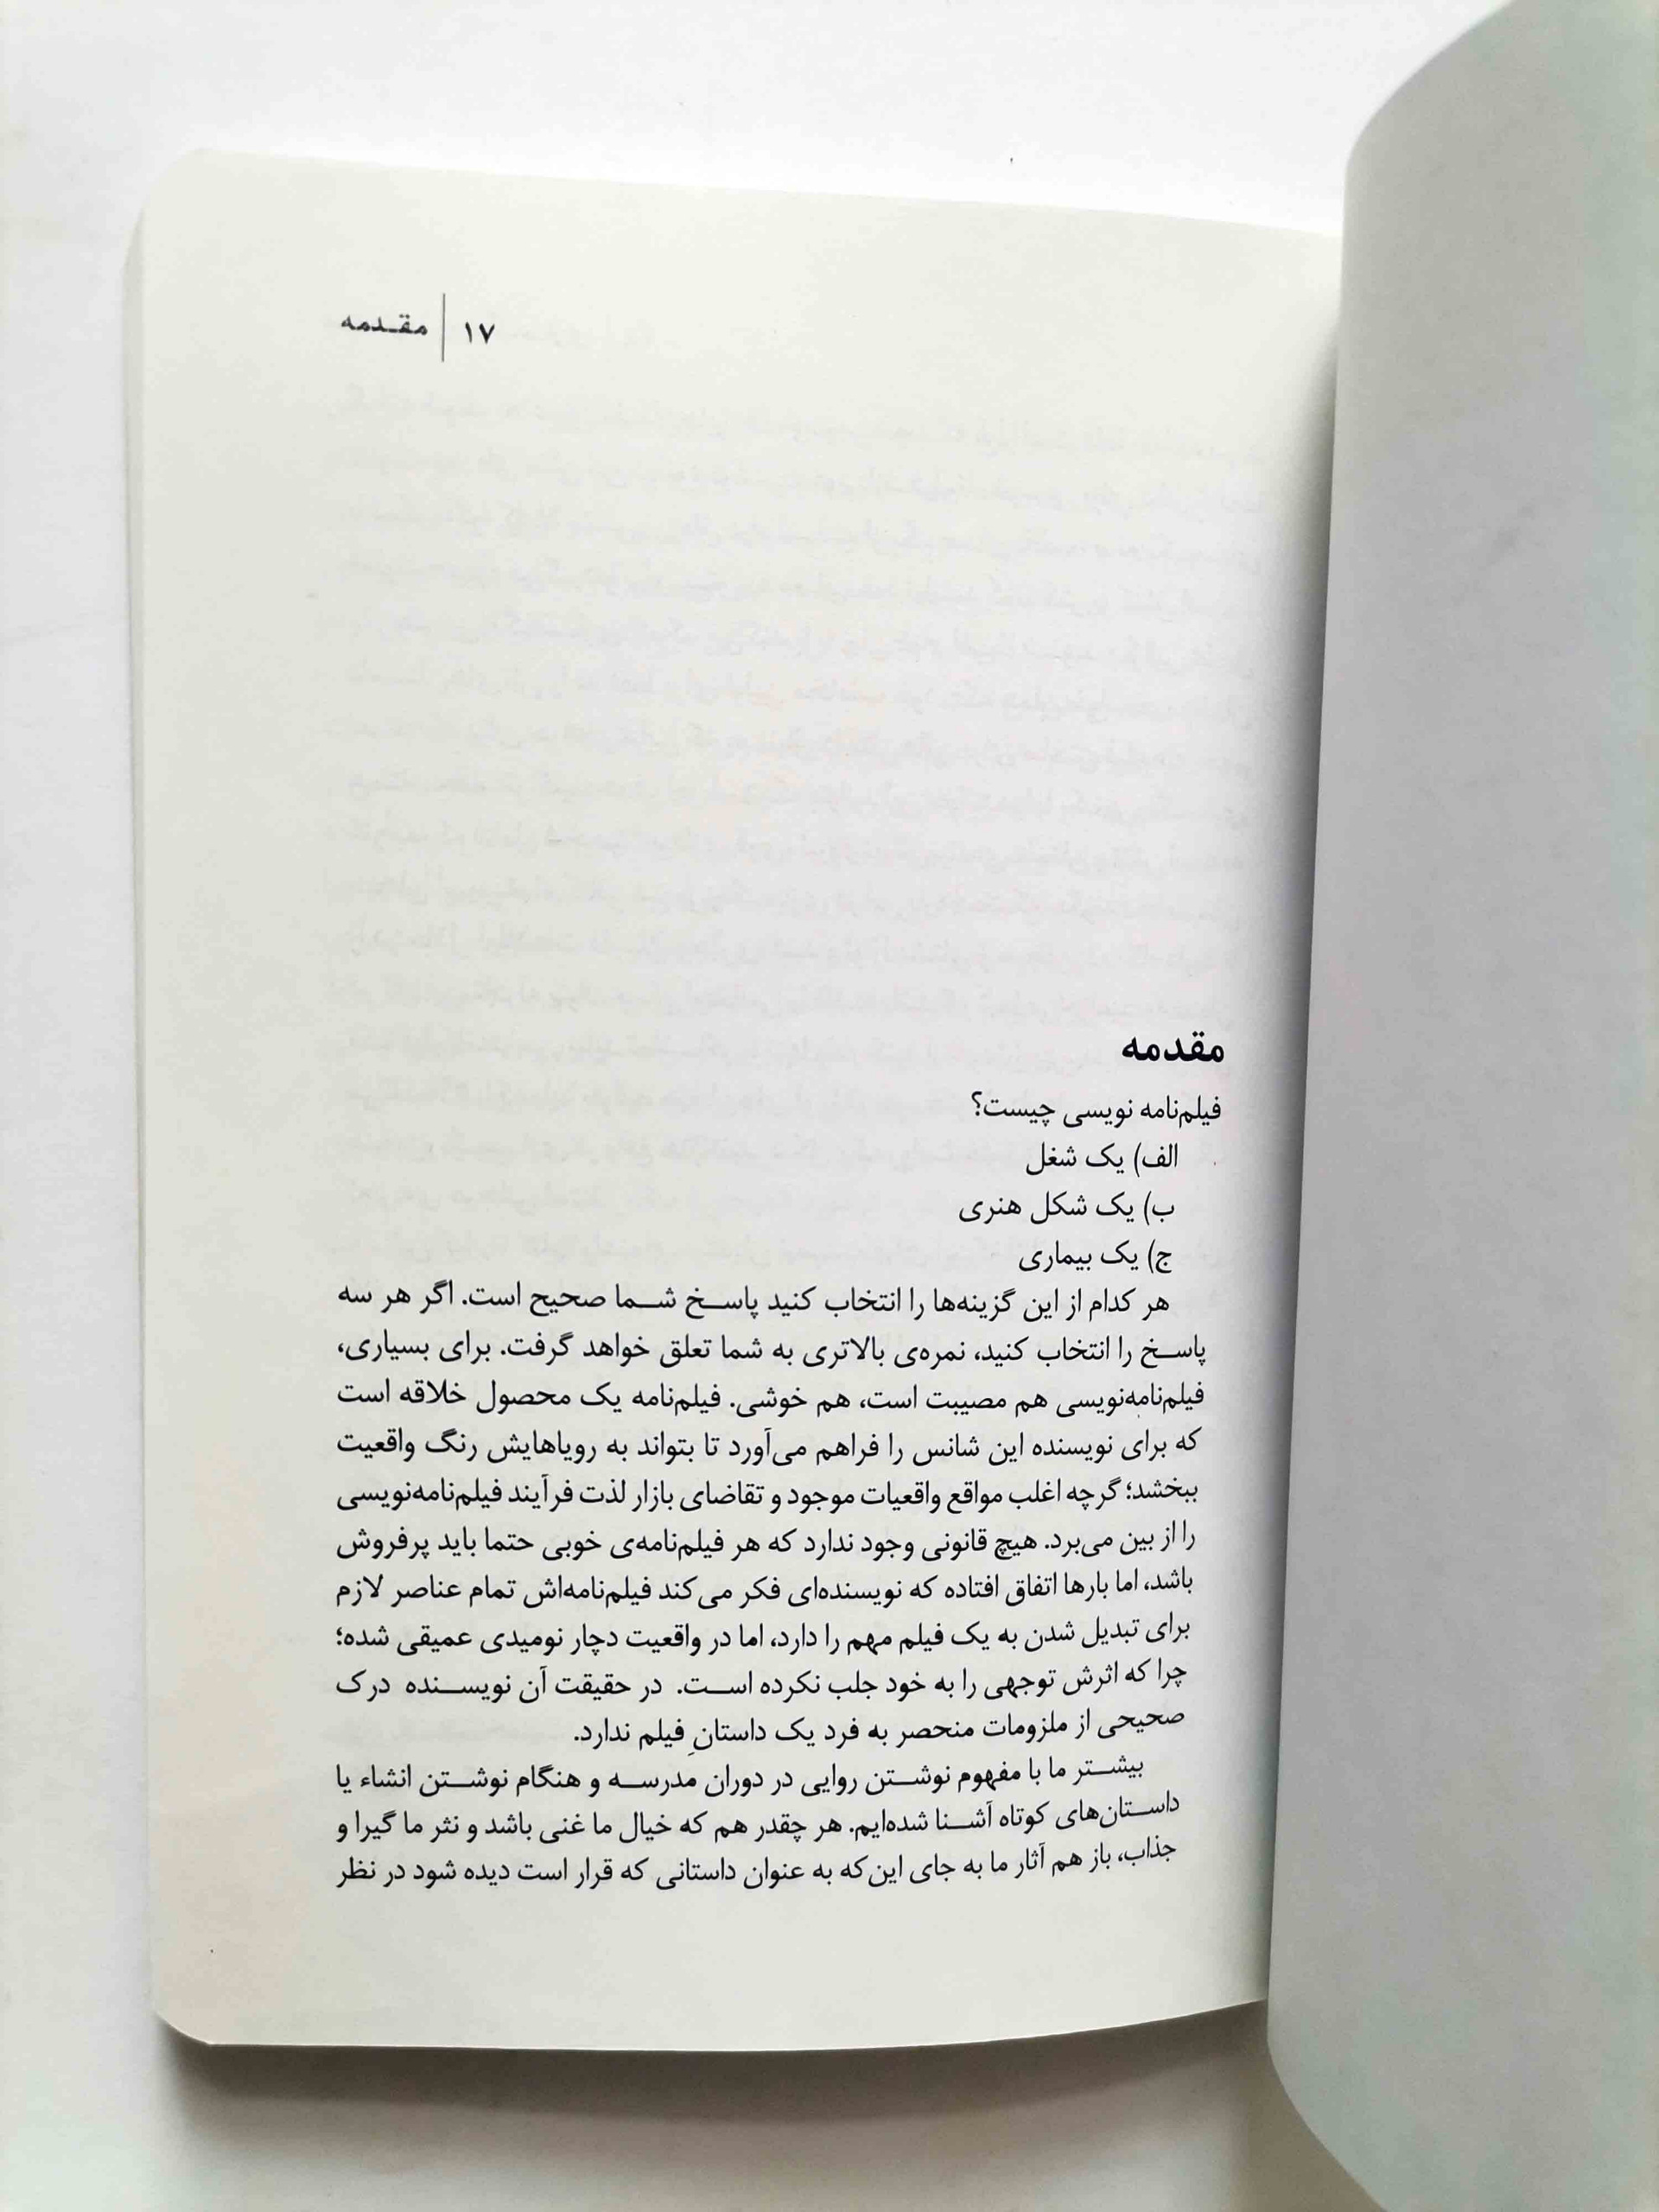 ۱۷ | مقدمه
مقدمه
فیلم‌نامه نویسی چیست؟
الف) یک شغل
ب) یک شکل هنری
ج) یک بیماری
هر کدام از این گزینه‌ها را انتخاب کنید پاسخ شما صحیح است. اگر هر سه
پاسخ را انتخاب کنید، نمره‌ی بالاتری به شما تعلق خواهد گرفت. برای بسیاری،
فیلم‌نامه‌نویسی هم مصیبت است، هم خوشی. فیلم‌نامه یک محصول خلاقه است
که برای نویسنده این شانس را فراهم می‌آورد تا بتواند به رویاهایش رنگ واقعیت
ببخشد؛ گرچه اغلب مواقع واقعیات موجود و تقاضای بازار لذت فرآیند فیلم‌نامه‌نویسی
را از بین می‌برد. هیچ قانونی وجود ندارد که هر فیلم‌نامه‌ی خوبی حتما باید پرفروش
باشد، اما بارها اتفاق افتاده که نویسنده‌ای فکر می‌کند فیلم‌نامه‌اش تمام عناصر لازم
برای تبدیل شدن به یک فیلم مهم را دارد، اما در واقعیت دچار نومیدی عمیقی شده؛
چرا که اثرش توجهی را به خود جلب نکرده است. در حقیقت آن نویسنده درک
صحیحی از ملزومات منحصر به فرد یک داستانِ فیلم ندارد.
بیشتر ما با مفهوم نوشتن روایی در دوران مدرسه و هنگام نوشتن انشاء یا
داستان‌های کوتاه آشنا شده‌ایم. هر چقدر هم که خیال ما غنی باشد و نثر ما گیرا و
جذاب، باز هم آثار ما به جای این‌که به عنوان داستانی که قرار است دیده شود در نظر